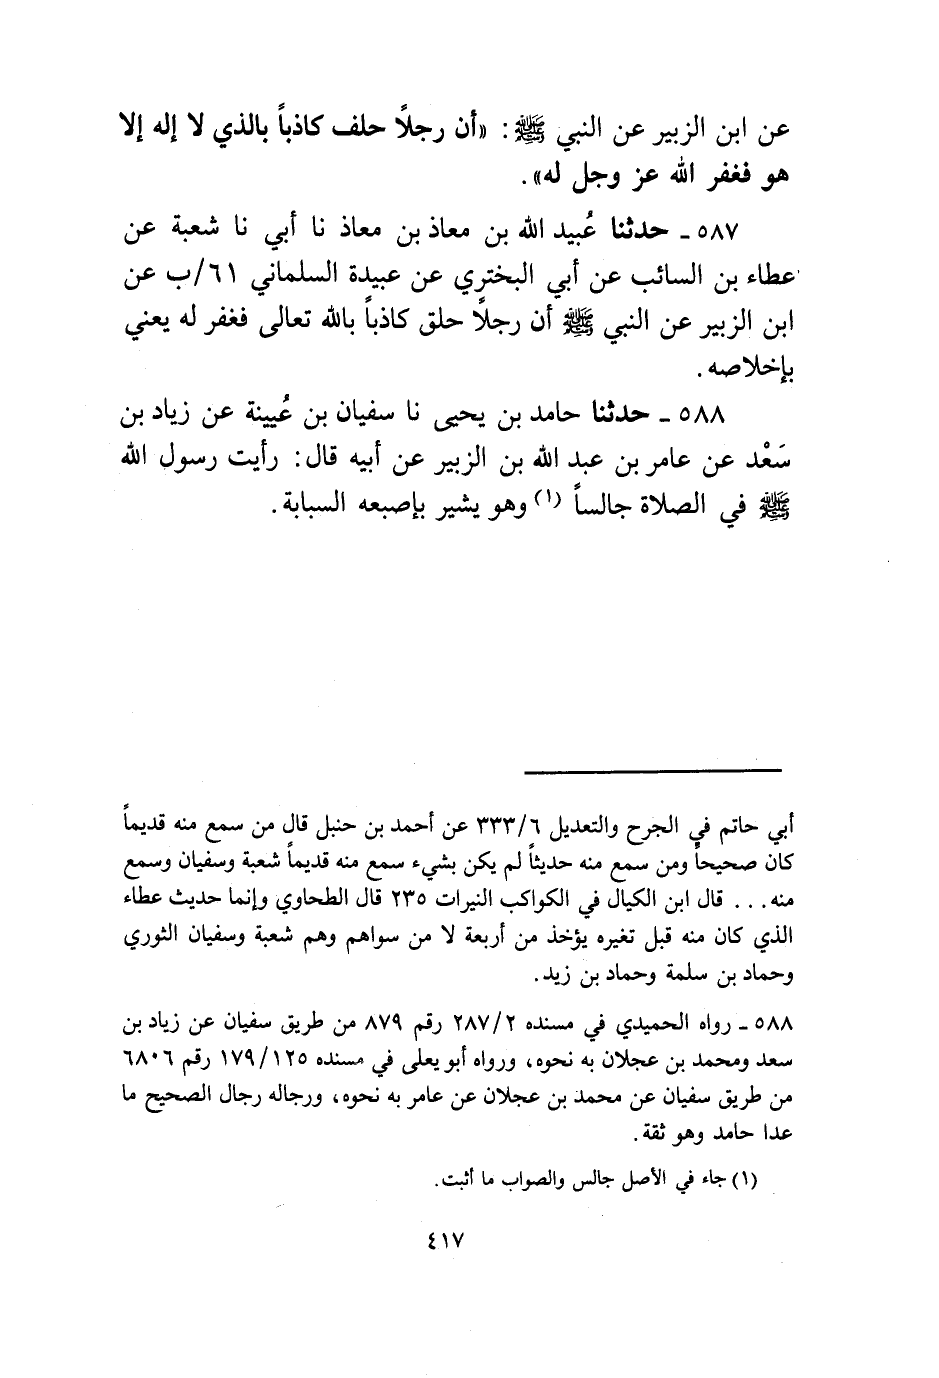 عن ابن الزبير عن النبي ﷺ: «أن رجلاً حلف كاذباً بالذي لا إله إلا
هو فغفر الله عز وجل له».
٥٨٧ ـ حدثنا عُبيد الله بن معاذ بن معاذ نا أبي نا شعبة عن
عطاء بن السائب عن أبي البختري عن عبيدة السلماني ٦١/ب عن
ابن الزبير عن النبي ﷺ أن رجلاً حلق كاذباً بالله تعالى فغفر له يعني
بإخلاصه.
٥٨٨ ـ حدثنا حامد بن يحيى نا سفيان بن عُيينة عن زياد بن
سَعْد عن عامر بن عبد الله بن الزبير عن أبيه قال: رأيت رسول الله
ﷺ في الصلاة جالساً (١) وهو يشير بإصبعه السبابة.
أبي حاتم في الجرح والتعديل ٣٣٣/٦ عن أحمد بن حنبل قال من سمع منه قديماً
كان صحيحاً ومن سمع منه حديثاً لم يكن بشيء سمع منه قديماً شعبة وسفيان وسمع
منه... قال ابن الكيال في الكواكب النيرات ٢٣٥ قال الطحاوي وإنما حديث عطاء
الذي كان منه قبل تغيره يؤخذ من أربعة لا من سواهم وهم شعبة وسفيان الثوري
وحماد بن سلمة وحماد بن زيد.
٥٨٨ ـ رواه الحميدي في مسنده ٢٨٧/٢ رقم ٨٧٩ من طريق سفيان عن زياد بن
سعد ومحمد بن عجلان به نحوه، ورواه أبو يعلى في مسنده ١٧٩/١٢٥ رقم ٦٨٠٦
من طريق سفيان عن محمد بن عجلان عن عامر به نحوه، ورجاله رجال الصحيح ما
عدا حامد وهو ثقة.
(١) جاء في الأصل جالس والصواب ما أثبت.
٤١٧